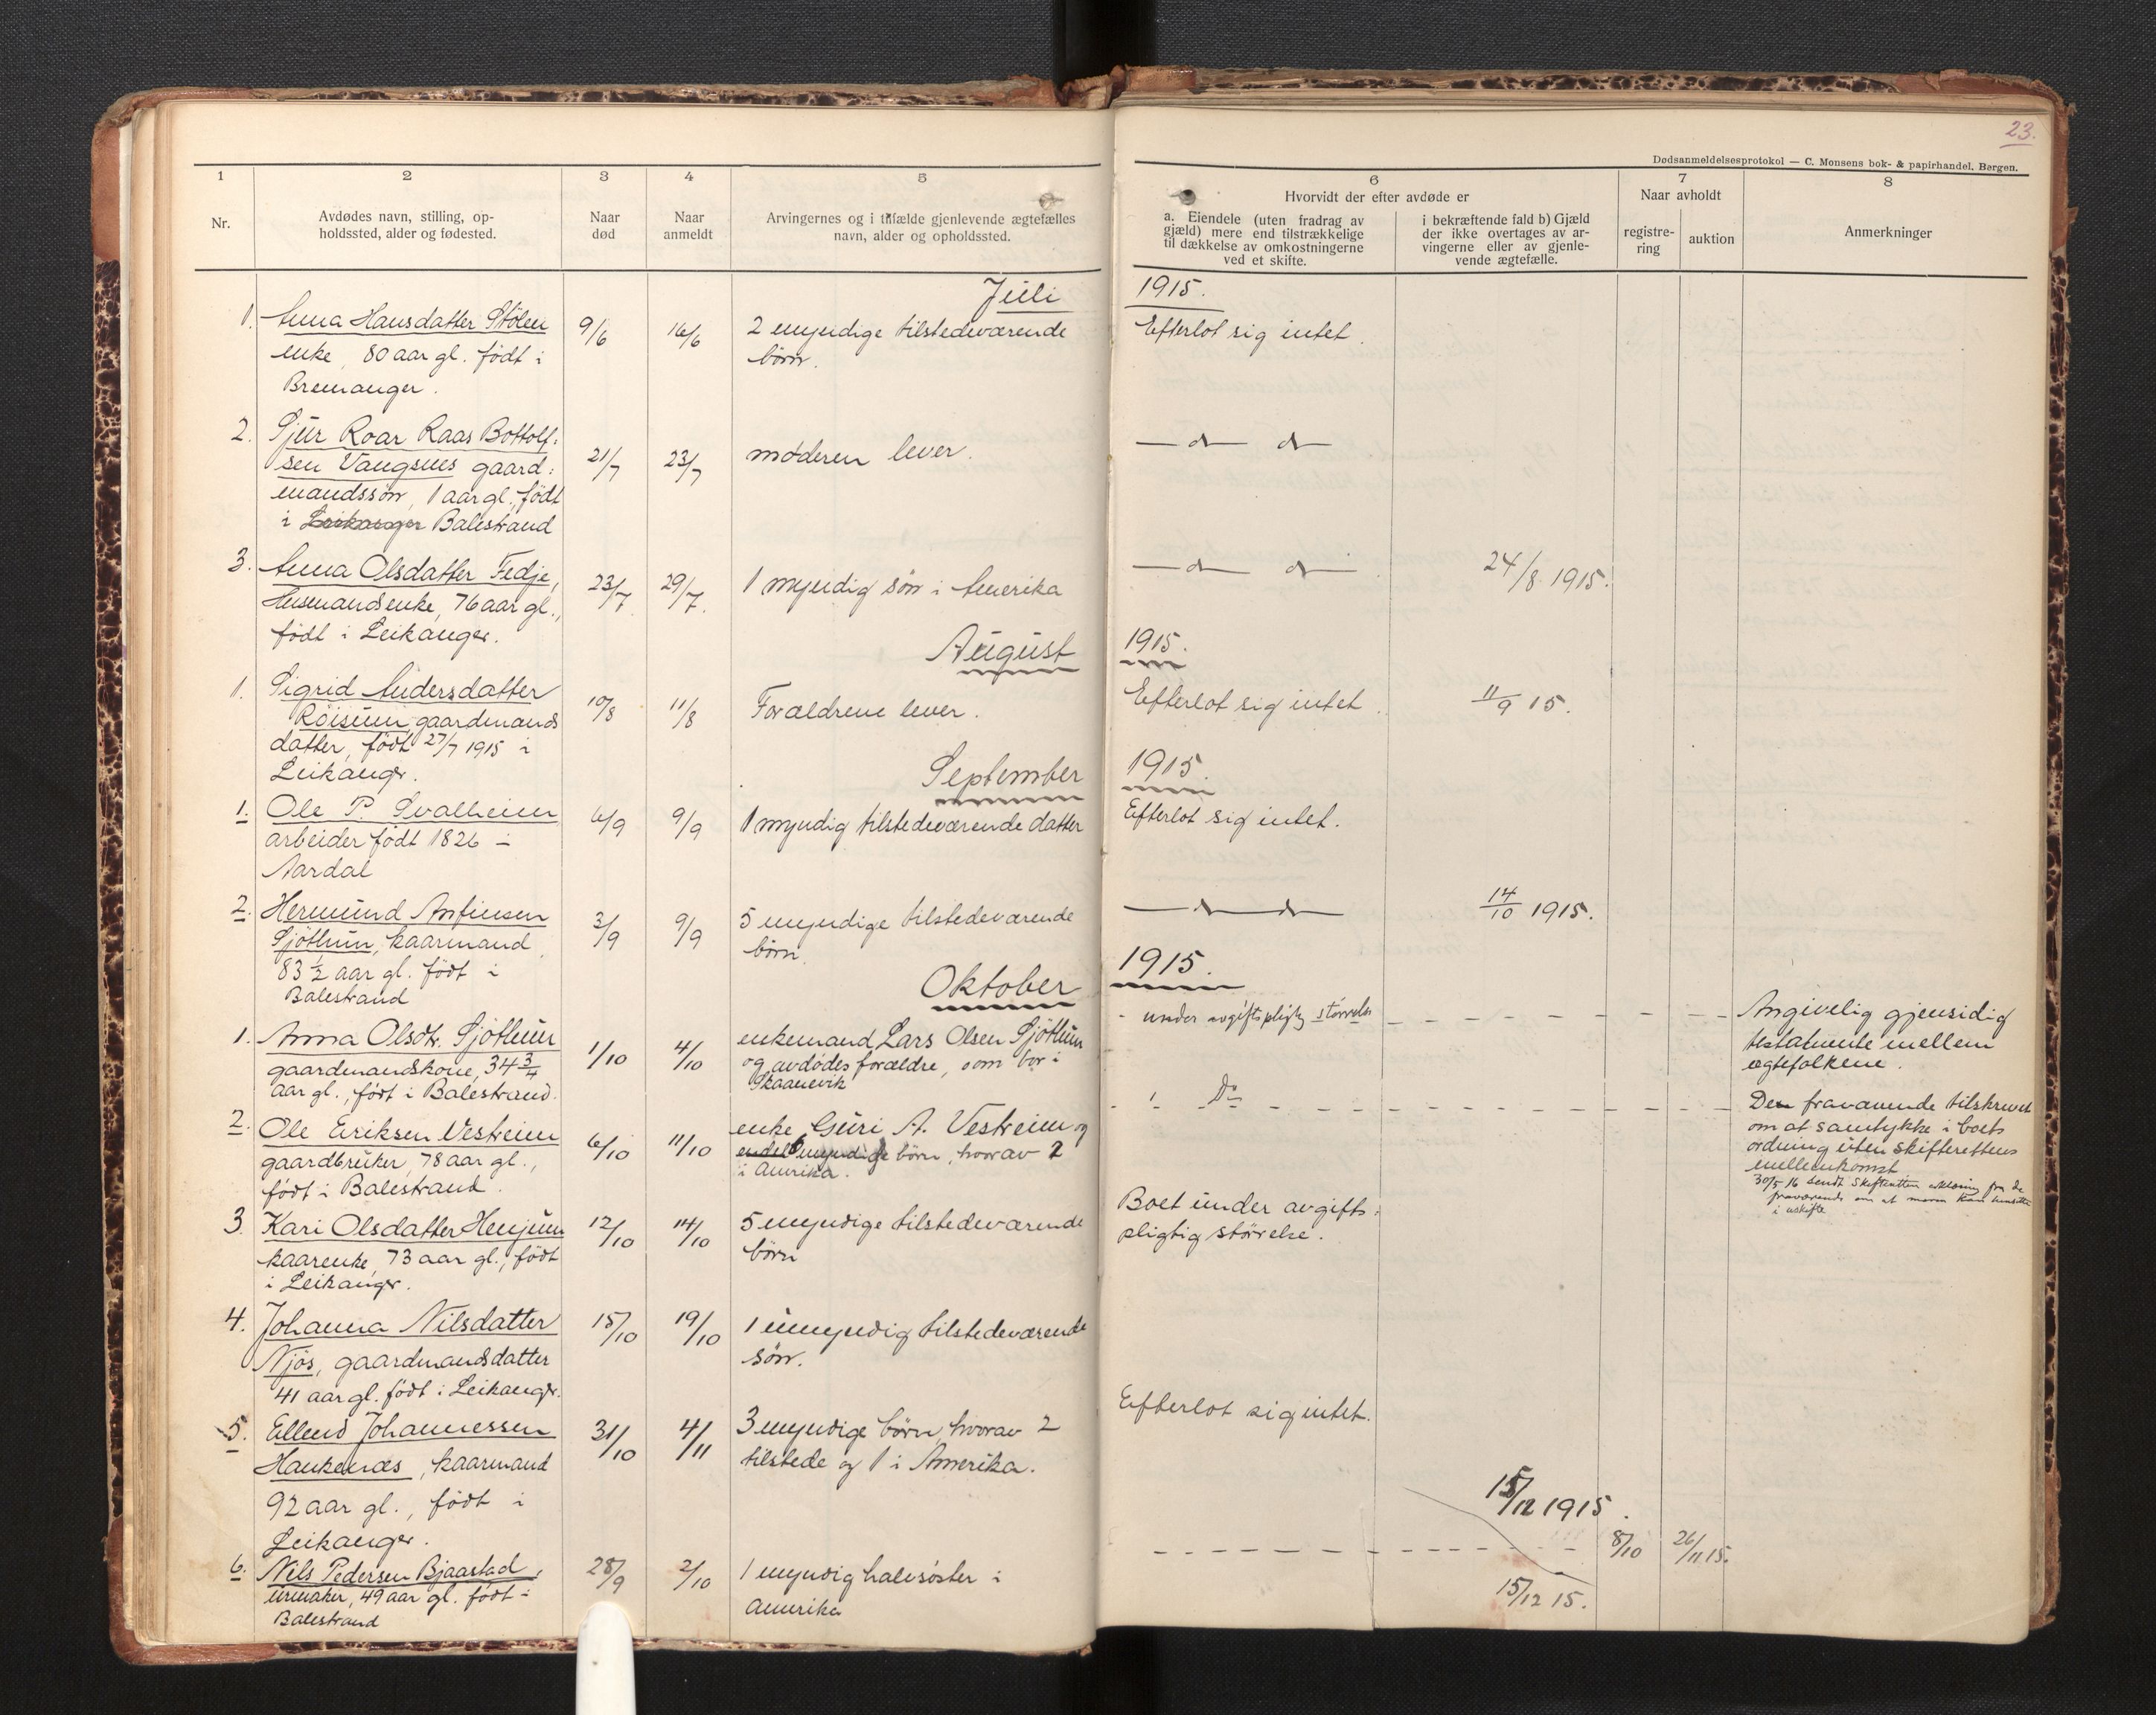 23.
Dødsanmeldelsesprotokol — C. Monsens bok- & papirhandel, Bergen.
1
2
3
4
5
6
7
8
Nr.
Avdødes navn, stilling, op-
holdssted, alder og fødested.
Naar
død
Naar
anmeldt
Arvingernes og i tilfælde gjenlevende ægtefælles
navn, alder og opholdssted.
Hvorvidt der efter avdøde er
a. Eiendele (uten fradrag av
gjæld) mere end tilstrækkelige
til dækkelse av omkostningerne
ved et skifte.
i bekræftende fald b) Gjæld
der ikke overtages av ar-
vingerne eller av gjenle-
vende ægtefælle.
Naar avholdt
registre-
ring
auktion
Anmerkninger
Juli 1915.
1. Anna Hansdatter Stölen
enke, 80 aar gl. födt i
Bremanger.
9/6
16/6
2 myndige tilstedeværende
börn.
Efterlot sig intet.
2. Sjur Roar Raas Bottolf-
sen Vangsnes gaard-
mandssön, 1 aar gl., födt
i Leikanger Balestrand
21/7
23/7
moderen lever.
— d — d —
3. Anna Olsdatter Fedje,
Husmandsenke, 76 aar gl.,
födt i Leikanger.
23/7
29/7.
1 myndig sön i Amerika
— d — d —
24/8 1915.
August 1915.
1. Sigrid Andersdatter
Röisum, gaardmands
datter, födt 27/7 1915 i
Leikangr.
10/8
11/8
Forældrene lever.
Efterlot sig intet.
11/9 15.
September 1915.
1. Ole P. Svalheim
arbeider födt 1826 i
Aardal
6/9
9/9
1 myndig tilstedeværende datter
Efterlot sig intet.
2. Hermund Anfinsen
Sjöthun, kaarmand,
83 1/2 aar gl. födt i
Balestrand
3/9
9/9
5 myndige tilstedeværende
börn.
— d — d —
14/10 1915.
Oktober 1915.
1. Anna Olsdtr. Sjöthun
gaardmandskone, 34 3/4
aar gl., födt i Balestrand.
1/10
4/10
enkemand Lars Olsen Sjöthun
og avdödes forældre, som bor i
Skaanevik
- under avgiftspligtig störrelse
Angivelig gjensidig
testamente mellem
ægtefolkene.
2. Ole Eriksen Vestreim
gaardbruker, 78 aar gl.,
födt i Balestrand.
6/10
11/10
enke Guri A. Vestreim og
endel 6 myndige börn, hvorav 2
i Amerika.
Do
Den fraværende tilskrevet
om at samtykke i boets
ordning uten skifterettens
mellemkomst.
30/5 16 sendt Skifteretten erklæring fra de
fraværende om at moren kan hensitte
i uskifte
3. Kari Olsdatter Henjum
kaarenke, 73 aar gl., födt
i Leikangr.
12/10
14/10
5 myndige tilstedeværende
börn
Boet under avgifts-
pligtig störrelse.
4. Johanna Nilsdatter
Njös, gaardmandsdatter
41 aar gl. födt i Leikangr.
15/10
19/10
1 umyndig tilstedeværende
sön.
5. Ellend Johannessen
Haukenæs, kaarmand
92 aar gl., födt i
Leikangr.
31/10
4/11
3 myndige börn, hvorav 2
tilstede og 1 i Amerika.
Efterlot sig intet.
15/12 1915.
6. Nils Pedersen Bjaastad,
urmaker, 49 aar gl. födt i
Balestrand
28/9
2/10
1 myndig halvsöster i
Amerika
8/10
26/11 15.
15/12 15.